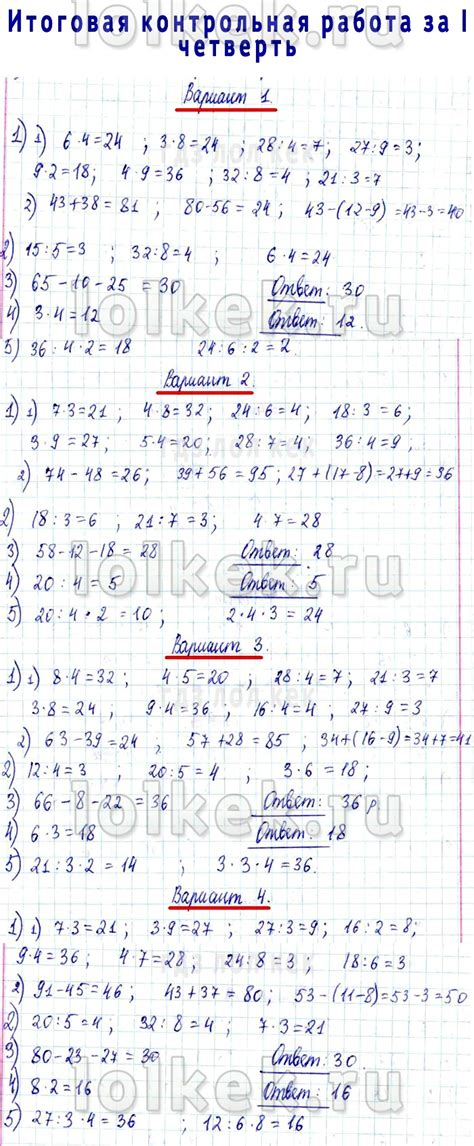 Итоговая контрольная работа за I
четверть
Вариант 1.
1) 1) 6·4=24 ; 3·8=24 ; 28:4=7; 27:9=3;
9·2=18; 4·9=36 ; 32:8=4 ; 21:3=7
2) 43+38=81 ; 80-56=24 ; 43-(12-9)=43-3=40
2) 15:5=3 ; 32:8=4 ; 6·4=24
3) 65-10-25=30 Ответ: 30
4) 3·4=12 Ответ: 12.
5) 36:4·2=18 24:6:2=2.
Вариант 2.
1) 1) 7·3=21 ; 4·8=32; 24:6=4; 18:3=6;
3·9=27; 5·4=20; 28:7=4; 36:4=9;
2) 74-48=26; 39+56=95; 27+(17-8)=27+9=36
2) 18:3=6 ; 21:7=3; 4·7=28
3) 58-12-18=28 Ответ: 28
4) 20:4=5 Ответ: 5
5) 20:4·2=10; 2·4·3=24
Вариант 3.
1) 1) 8·4=32; 4·5=20 ; 28:4=7; 21:3=7
3·8=24 ; 9·4=36 , 16:4=4 ; 27:9=3
2) 63-39=24 ; 57+28=85 ; 34+(16-9)=34+7=41
2) 12:4=3 ; 20:5=4 ; 3·6=18;
3) 66-8-22=36 Ответ: 36 р.
4) 6·3=18 Ответ: 18
5) 21:3·2=14 ; 3·3·4=36.
Вариант 4.
1) 1) 7·3=21 ; 3·9=27 ; 27:3=9; 16:2=8;
9·4=36 ; 4·7=28 ; 24:8=3 ; 18:6=3
2) 91-45=46 ; 43+37=80; 53-(11-8)=53-3=50
2) 20:5=4; 32:8=4 ; 7·3=21
3) 80-23-27=30 Ответ: 30.
4) 8·2=16 Ответ: 16
5) 27:3·4=36 ; 12:6·8=16
lolkek.ru
гдз лол кек